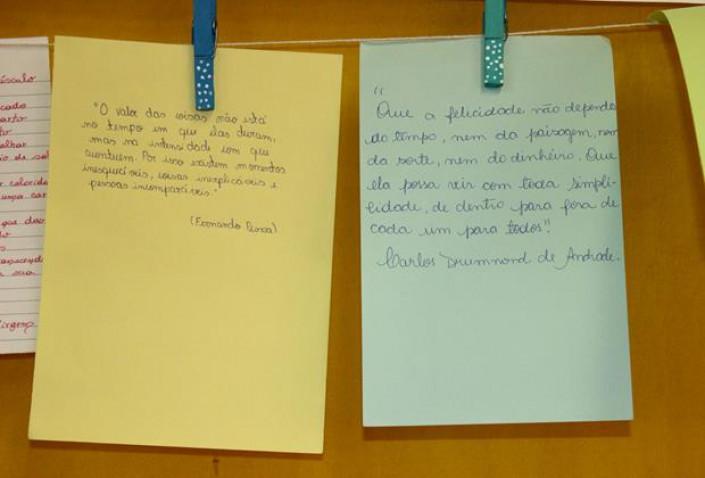 ísculo
"O valor das coisas não está
no tempo em que elas duram,
mas na intensidade com que
acontecem. Por isso existem momentos
inesquecíveis, coisas inexplicáveis e
pessoas incomparáveis."
(Fernando Pessoa)
"
Que a felicidade não dependa
do tempo, nem da paisagem, nem
da sorte, nem do dinheiro. Que
ela possa vir com toda simpli-
cidade, de dentro para fora de
cada um para todos".
Carlos Drummond de Andrade.